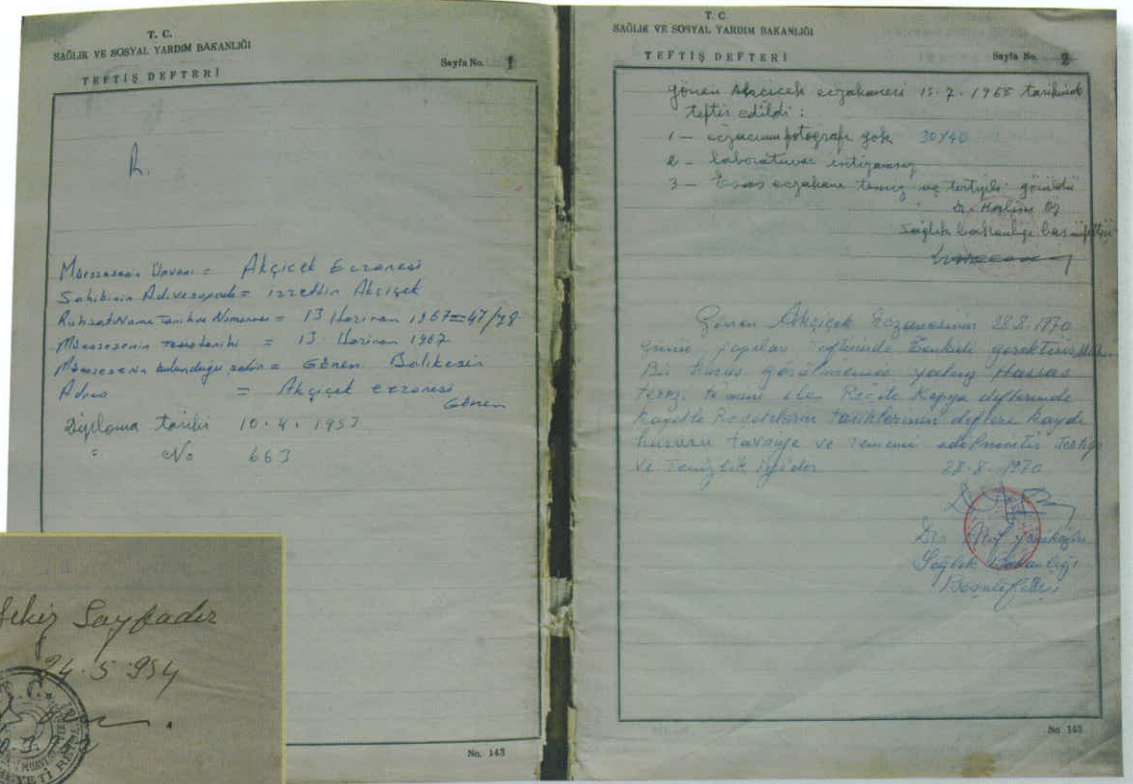 T. C.
SAĞLIK VE SOSYAL YARDIM BAKANLIĞI
TEFTİŞ DEFTERİ
Sayfa No. 1
R.
Müessesenin Ünvanı = Akçiçek Eczanesi
Sahibinin Adı ve soyadı = izzettin Akçiçek
Ruhsatname Tarih ve Numarası = 13 Haziran 1967=47/78
Müessesenin tesis tarihi = 13. Haziran 1967
Müessesenin bulunduğu şehir = Gönen Balıkesir
Adres = Akçiçek eczanesi
Gönen
Diploma tarihi 10.4.1957
" No 663
No. 143
T. C.
SAĞLIK VE SOSYAL YARDIM BAKANLIĞI
TEFTİŞ DEFTERİ
Sayfa No. 2
Gönen Akçiçek eczahanesi 15.7.1968 tarihinde
teftiş edildi :
1 - eczacının fotografı yok 30x40
2 - laboratuvar intizamsız
3 - Esas eczahane temiz ve tertipli görüldü
Dr.
Sağlık bakanlığı baş müfettişi
Gönen Akçiçek Eczanesinin 28.8.1970
günü yapılan teftişinde Tenkidi gerektiren
Bir husus görülmemiş yalnız Hassas
terazi temini ile Reçete Kopya defterinde
kayıtlı Reçetelerin tarihlerinin deftere kaydı
hususu tavsiye ve temenni edilmiştir
ve Temizlik iyidir 28.8.1970
Dr.
Sağlık Bakanlığı
Başmüfettişi
No 143
Sekiz Sayfadır
24.5.954
T.C.